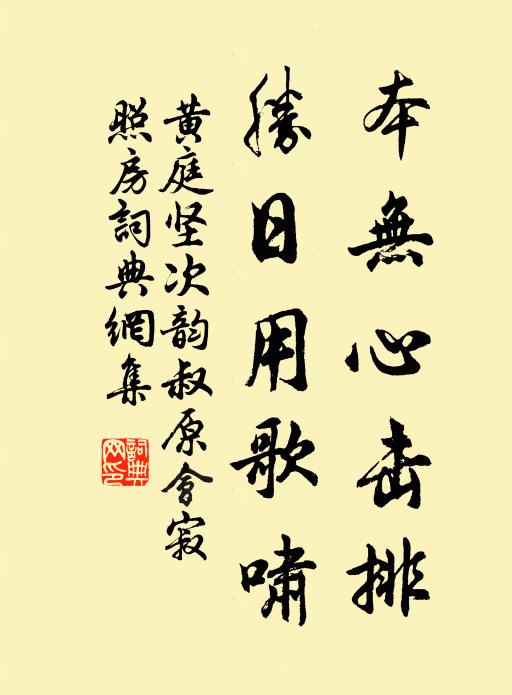 本無心击排
勝日用歌啸
黄庭坚次韵叔原會寂
照房詞典網集
詞典
网印